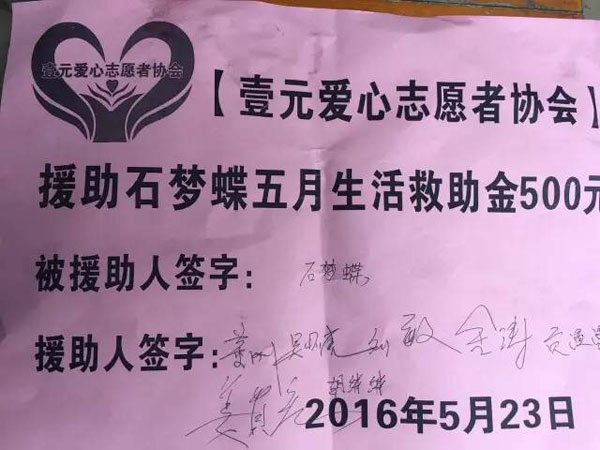 壹元爱心志愿者协会
【壹元爱心志愿者协会】
援助石梦蝶五月生活救助金500元
被援助人签字：石梦蝶
援助人签字：
2016年5月23日